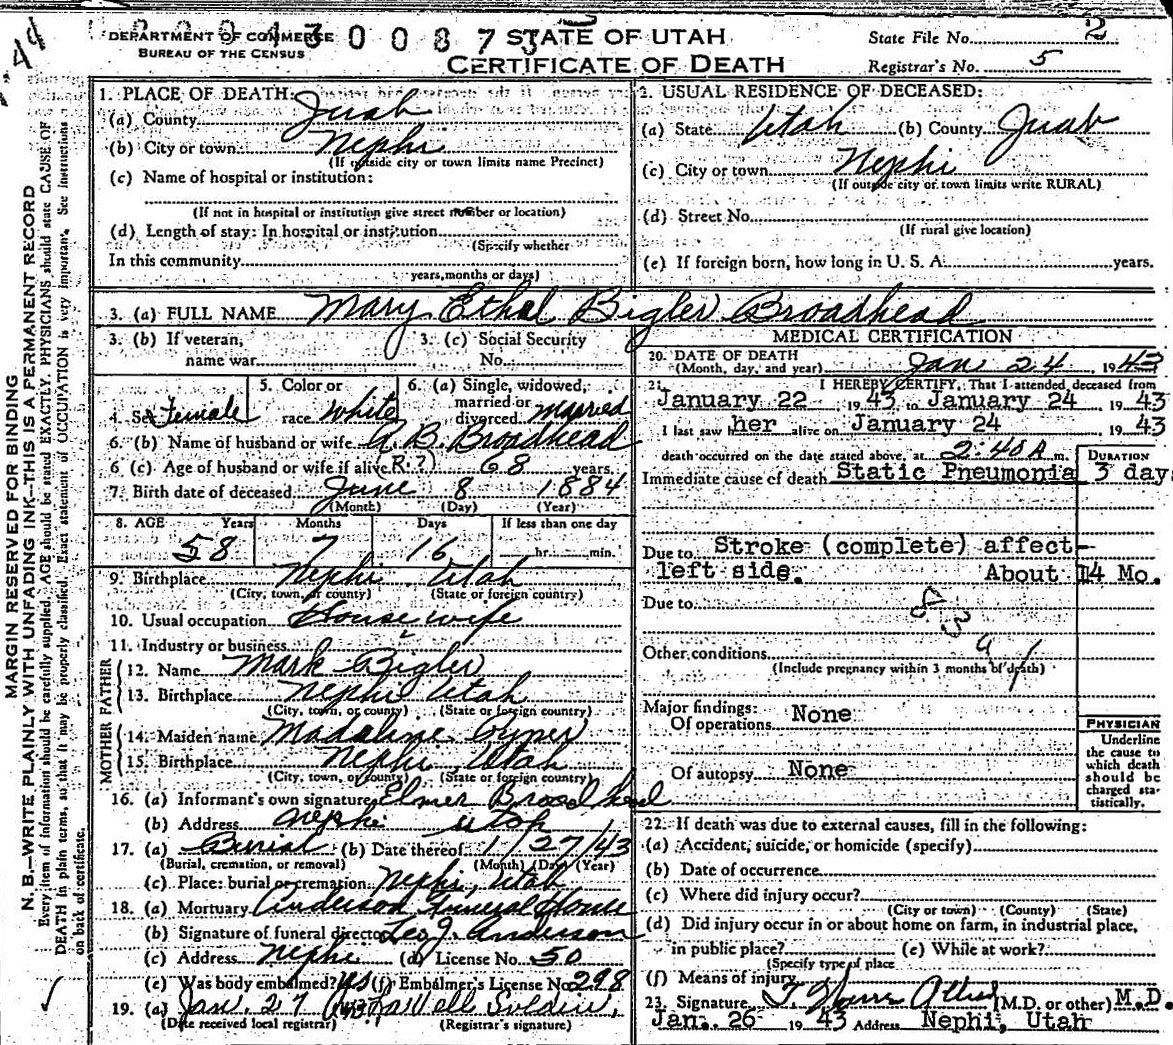 DEPARTMENT OF COMMERCE
BUREAU OF THE CENSUS
STATE OF UTAH
CERTIFICATE OF DEATH
State File No. 2
Registrar's No. 5
MARGIN RESERVED FOR BINDING
N. B.—WRITE PLAINLY WITH UNFADING INK—THIS IS A PERMANENT RECORD
Every item of information should be carefully supplied. AGE should be stated EXACTLY. PHYSICIANS should state CAUSE OF
DEATH in plain terms, so that it may be properly classified. Exact statement of OCCUPATION is very important. See instructions
on back of certificate.
1. PLACE OF DEATH:
(a) County Juab
(b) City or town Nephi
(If outside city or town limits name Precinct)
(c) Name of hospital or institution:
(If not in hospital or institution give street number or location)
(d) Length of stay: In hospital or institution
(Specify whether
In this community
years, months or days)
2. USUAL RESIDENCE OF DECEASED:
(a) State Utah (b) County Juab
(c) City or town Nephi
(If outside city or town limits write RURAL)
(d) Street No.
(If rural give location)
(e) If foreign born, how long in U. S. A. years.
3. (a) FULL NAME Mary Ethel Bigler Broadhead
3. (b) If veteran,
name war
3. (c) Social Security
No.
4. Sex Female
5. Color or
race White
6. (a) Single, widowed,
married or
divorced Married
6. (b) Name of husband or wife A. B. Broadhead
6 (c) Age of husband or wife if alive (R.?) 68 years.
7. Birth date of deceased June 8 1884
(Month) (Day) (Year)
8. AGE Years Months Days If less than one day
58 7 16 hr. min.
9. Birthplace Nephi Utah
(City, town, or county) (State or foreign country)
10. Usual occupation House wife
11. Industry or business
FATHER
12. Name Mark Bigler
13. Birthplace Nephi Utah
(City, town, or county) (State or foreign country)
MOTHER
14. Maiden name Madalane
15. Birthplace Nephi, Utah
(City, town, or county) (State or foreign country)
16. (a) Informant's own signature Elmer Broadhead
(b) Address nephi utah
17. (a) Burial (b) Date thereof 1/27/43
(Burial, cremation, or removal) (Month) (Day) (Year)
(c) Place: burial or cremation Nephi, Utah
18. (a) Mortuary Anderson Funeral Home
(b) Signature of funeral director Leo J. Anderson
(c) Address Nephi (d) License No. 50
(e) Was body embalmed? yes (f) Embalmer's License No. 298
19. (a) Jan. 27
(Date received local registrar) (Registrar's signature)
MEDICAL CERTIFICATION
20. DATE OF DEATH
(Month, day, and year) Jan 24 1943
21. I HEREBY CERTIFY, That I attended deceased from
January 22 1943 to January 24 1943
I last saw her alive on January 24 1943
death occurred on the date stated above, at 2:40 A m.
DURATION
Immediate cause of death Static Pneumonia 3 day
Due to Stroke (complete) affect-
left side. About 14 Mo.
Due to
Other conditions
(Include pregnancy within 3 months of death)
Major findings:
Of operations None
Of autopsy None
PHYSICIAN
Underline
the cause to
which death
should be
charged sta-
tistically.
22. If death was due to external causes, fill in the following:
(a) Accident, suicide, or homicide (specify)
(b) Date of occurrence
(c) Where did injury occur?
(City or town) (County) (State)
(d) Did injury occur in or about home on farm, in industrial place,
in public place? (e) While at work?
(Specify type of place
(f) Means of injury
23. Signature (M.D. or other) M.D.
Jan. 26 1943 Address Nephi, Utah